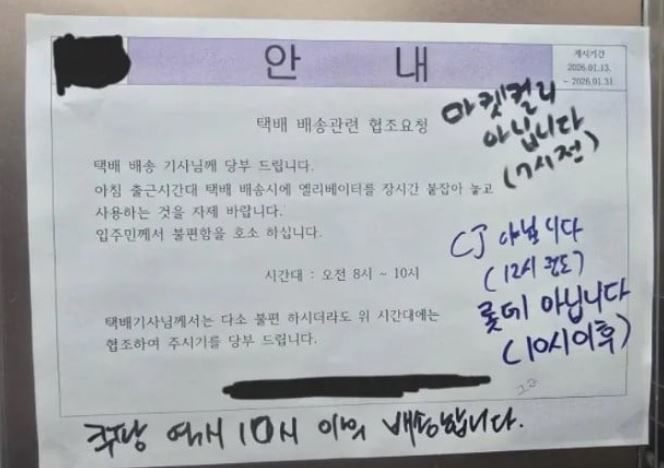 안 내
게시기간
2026.01.13.
~ 2026.01.31
택배 배송관련 협조요청
마켓컬리
아닙니다
(7시전)
택배 배송 기사님께 당부 드립니다.
아침 출근시간대 택배 배송시에 엘리베이터를 장시간 붙잡아 놓고
사용하는 것을 자제 바랍니다.
입주민께서 불편함을 호소 하십니다.
시간대 : 오전 8시 ~ 10시
CJ 아닙니다
(12시 정도)
롯데 아닙니다
(10시이후)
택배기사님께서는 다소 불편 하시더라도 위 시간대에는
협조하여 주시기를 당부 드립니다.
쿠팡 역시 10시 이후 배송합니다.